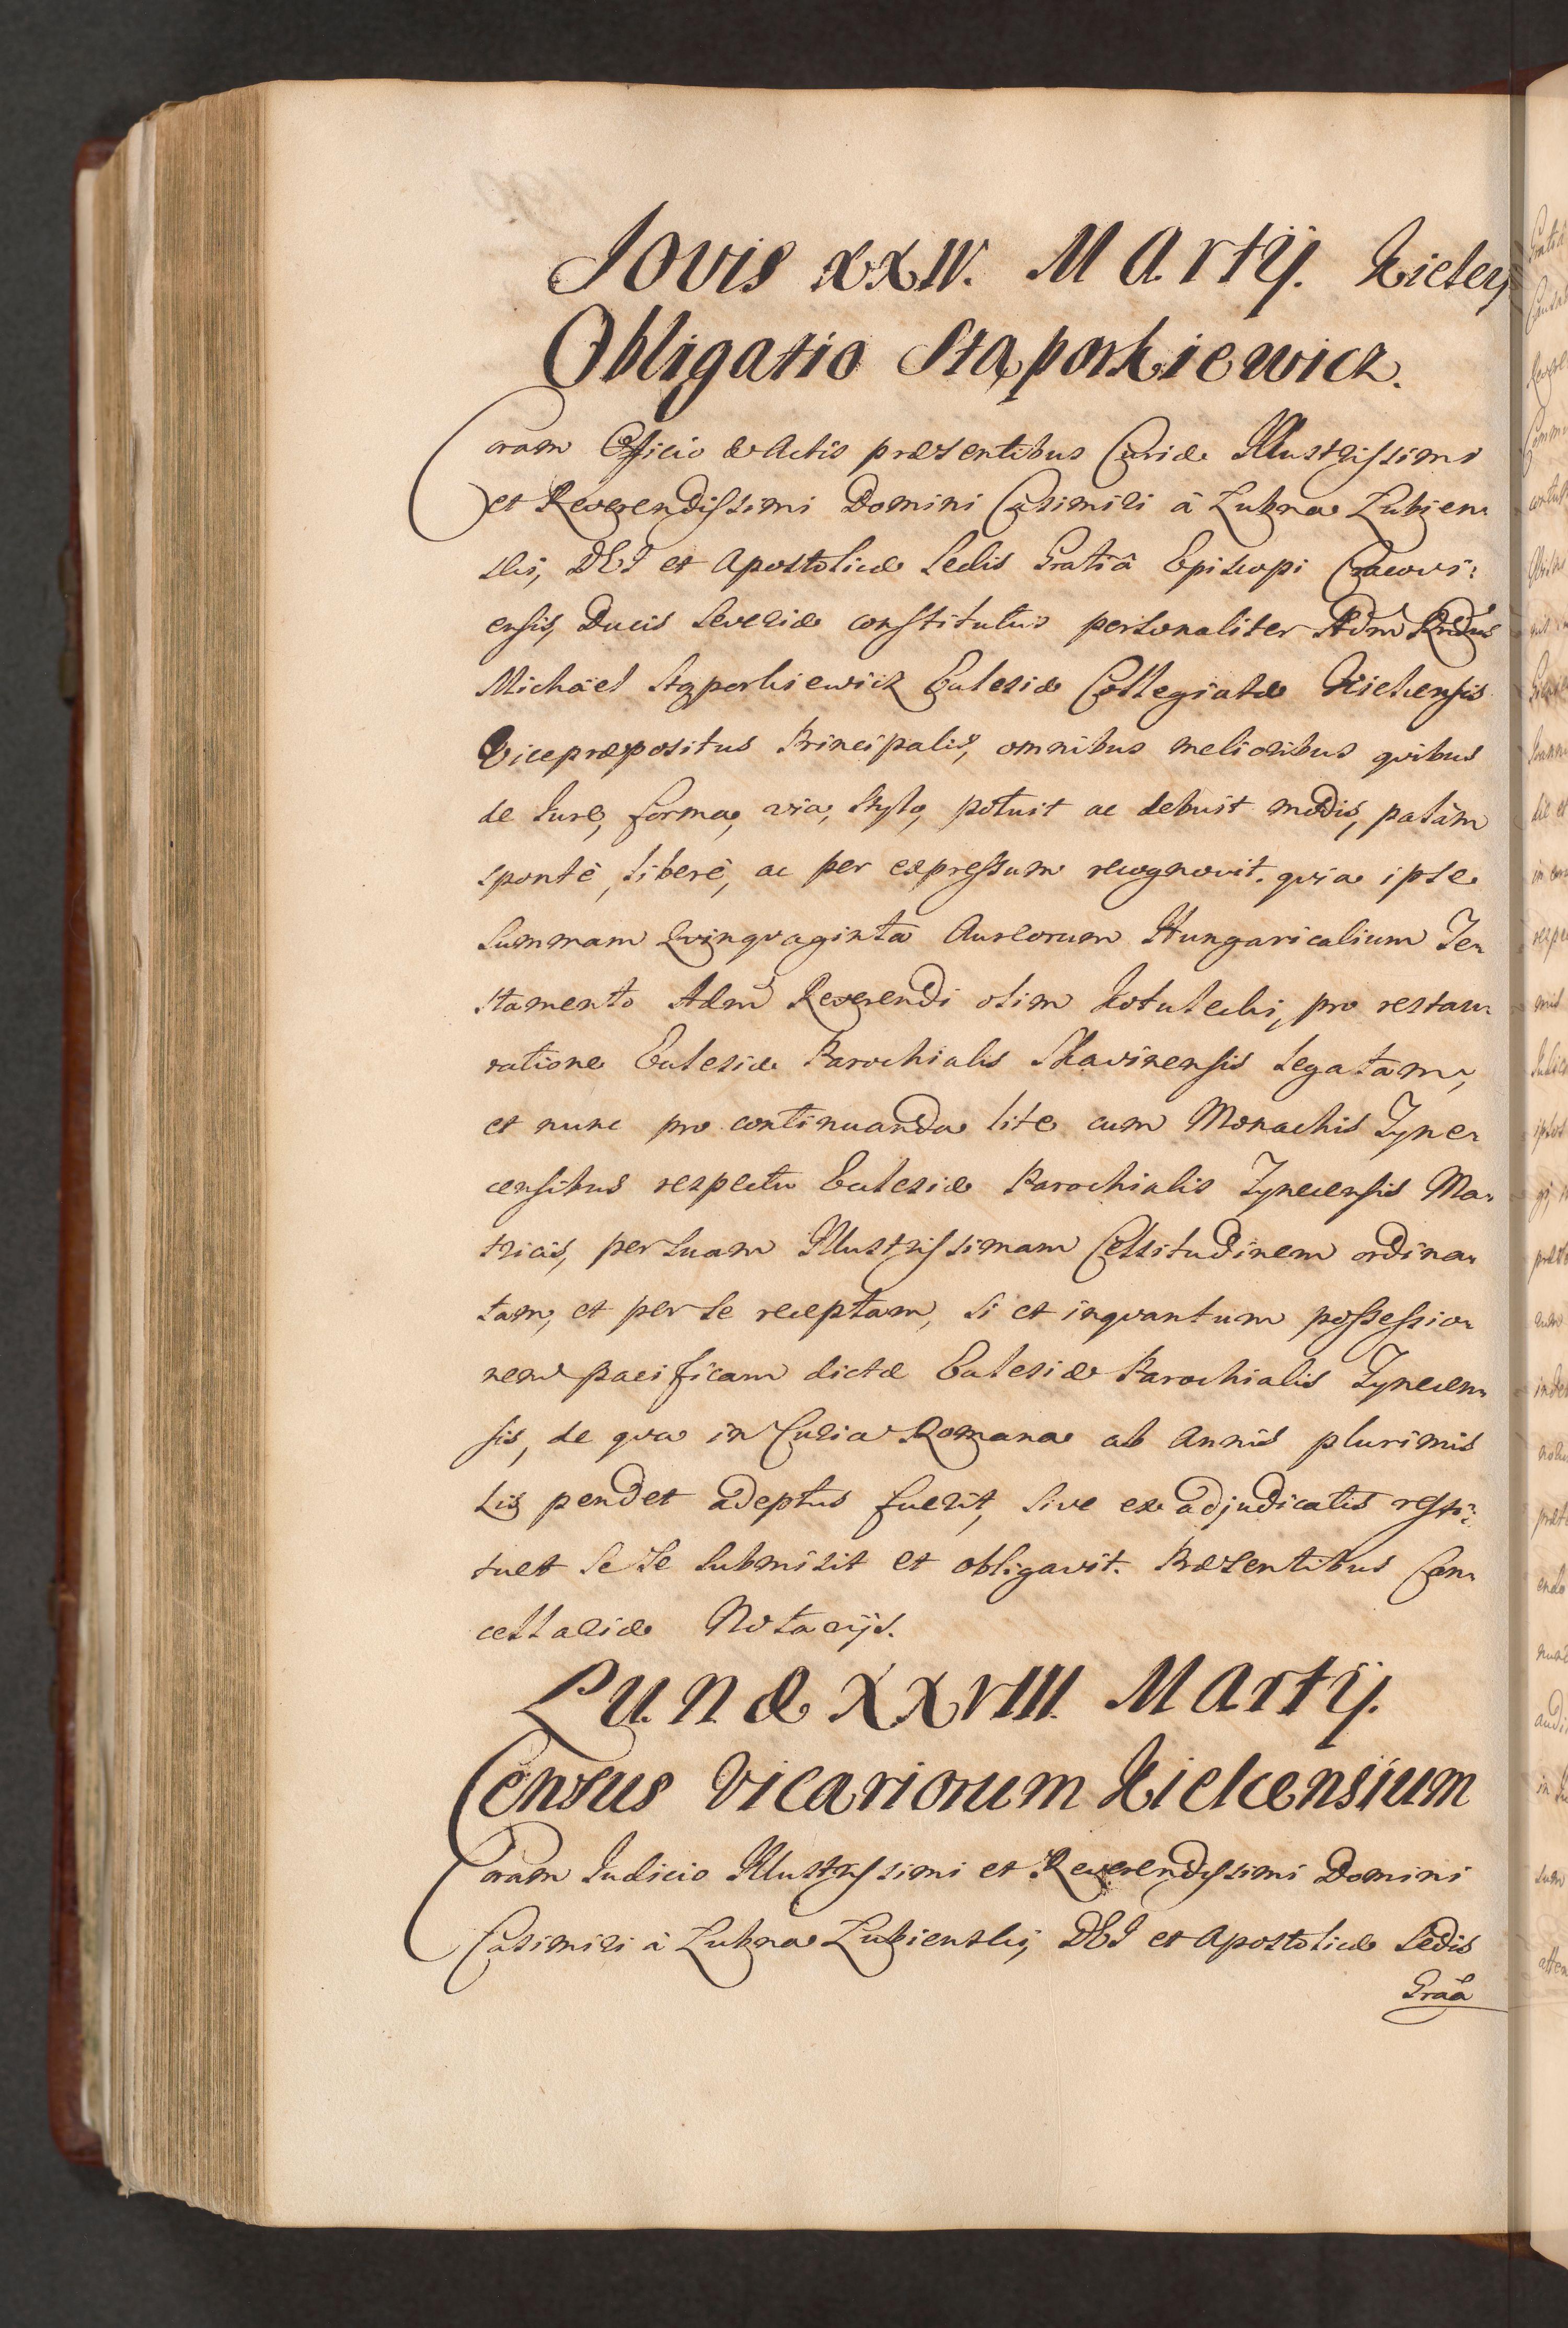 Jovis XXIV. Martÿ. Kielcÿ
Obligatio Stąporkiewicz.
Coram Officio & Actis præsentibus Curiæ Illustrissimi
et Reverendissimi Domini Casimiri à Lubna Lubien-
ski, DEI et Apostolicæ Sedis Gratiâ Episcopi Cracovi-
ensis, Ducis Severiæ constitutus personaliter Admd Rndus
Michaël Stąporkiewicz Ecclesiæ Collegiatæ Kielcensis
Vicepræpositus Principalis, omnibus melioribus quibus
de Jure, forma, via, stylo, potuit ac debuit modis, palàm
spontè, liberè, ac per expressum recognovit. quia ipse
Summam Quinquaginta Aureorum Hungaricalium Te-
stamento Admd Reverendi olim Kotulecki, pro restau-
ratione Ecclesiæ Parochialis Skavinensis legatam,
et nunc pro continuanda lite cum Monachis Tyne-
censibus respectu Ecclesiæ Parochialis Tynecensis Ma-
tricis, per Suam Illustrissimam Celsitudinem ordina-
tam, et per se receptam, si et inquantum possessio-
nem pacificam dictæ Ecclesiæ Parochialis Tynecen-
sis, de qua in Curia Romana ab Annis plurimis
Lis pendet adeptus fuerit, sive ex adjudicatis resti-
tuet se se submisit et obligavit. Præsentibus Can-
cellariæ Notarijs.
Lunæ XXVIII Martÿ.
Census Vicariorum Kielcensium
Coram Judicio Illustrissimi et Reverendissimi Domini
Casimiri à Lubna Lubienski, DEI et Apostolicæ Sedis
Graâ